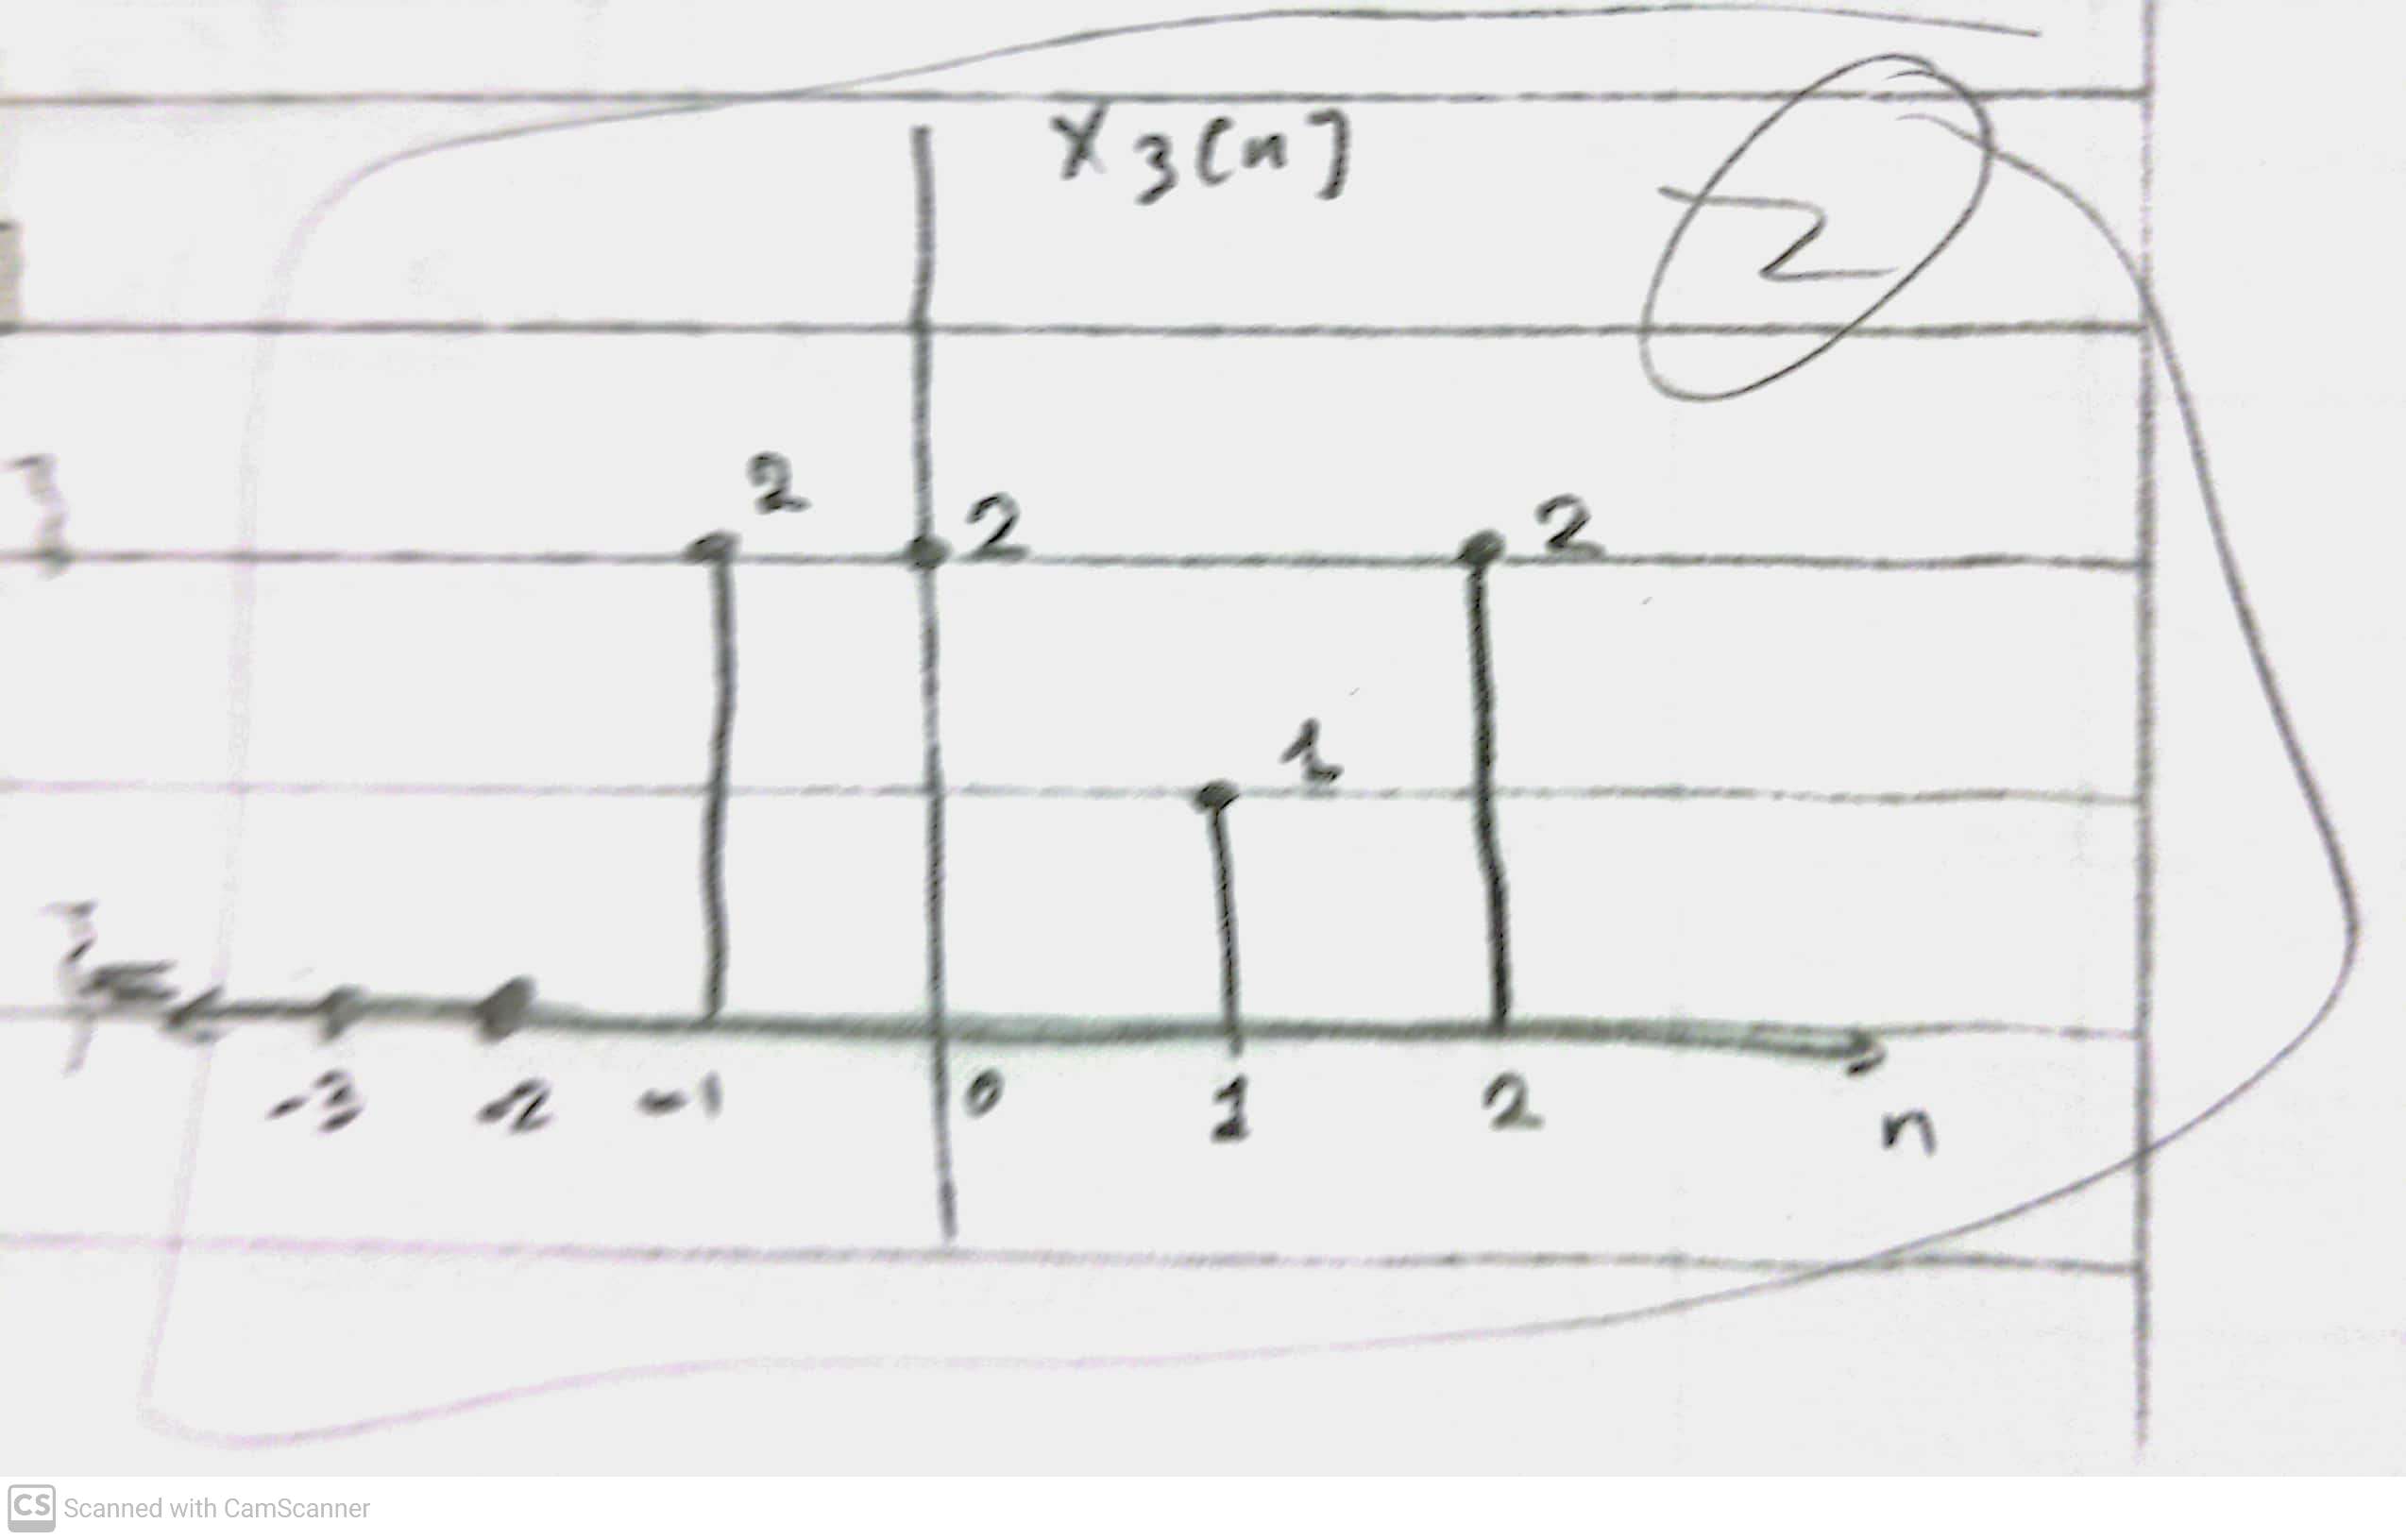 x3(n]
2
2 2 2
1
-3 -2 -1 0 1 2 n
CS Scanned with CamScanner